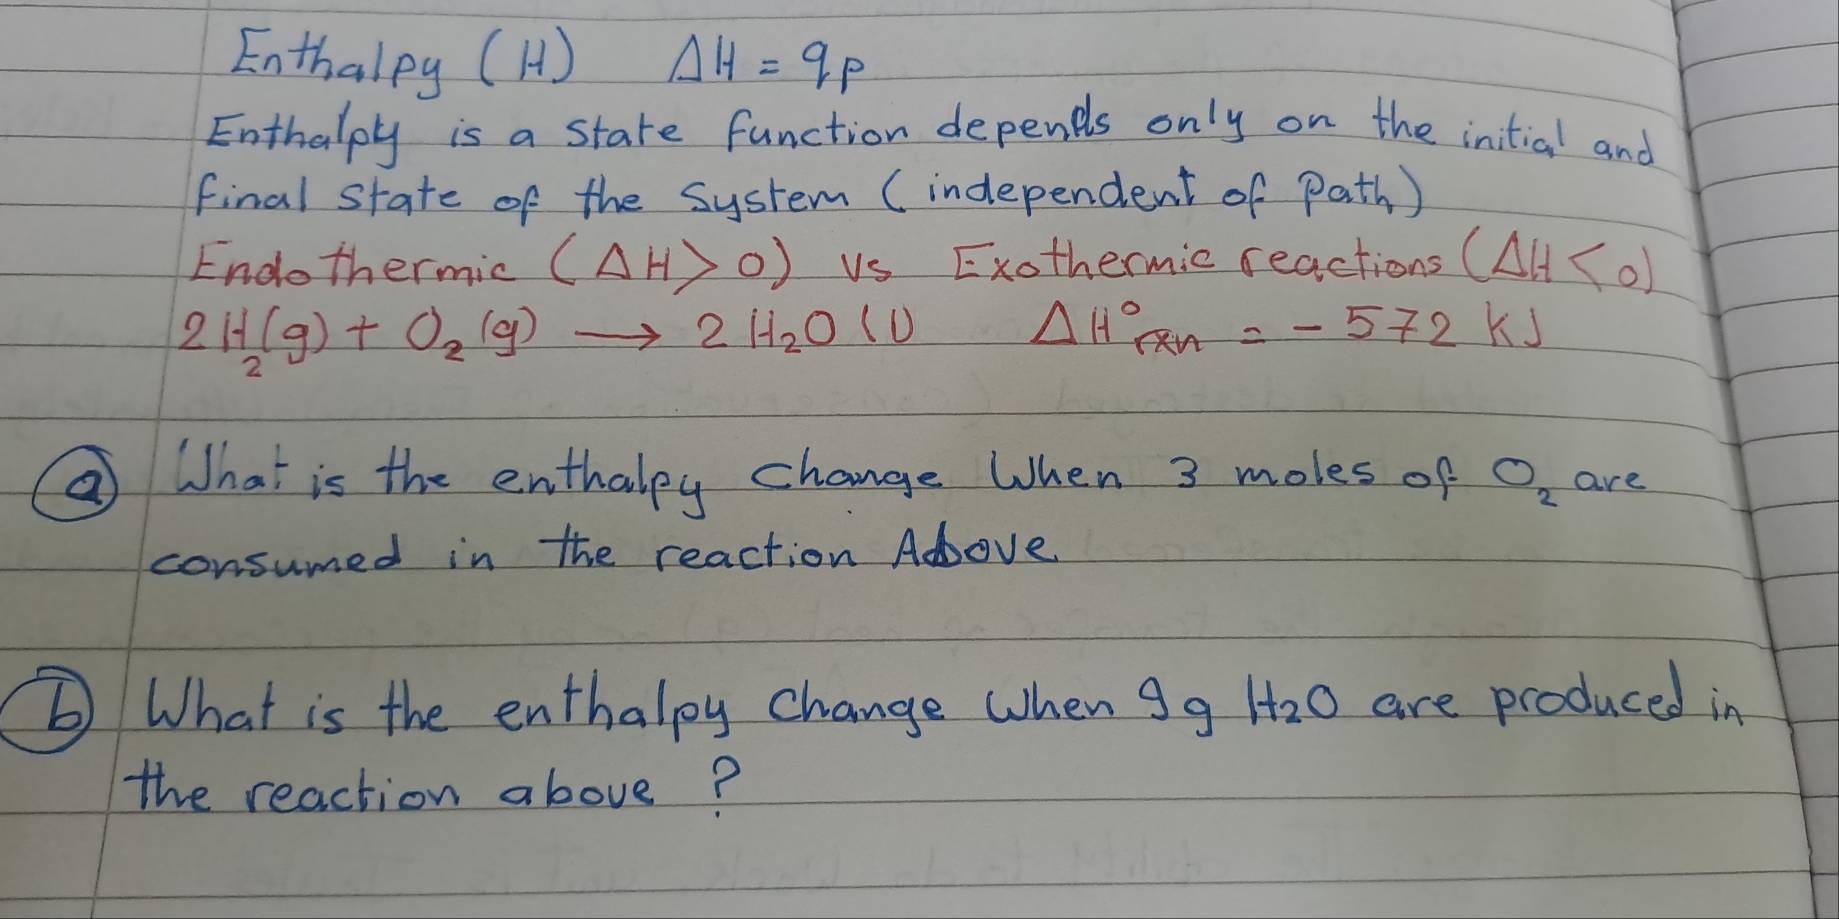 Enthalpy (H) ΔH = qp
Enthalpy is a state function depends only on the initial and
final state of the system (independent of path)
Endothermic (ΔH > 0) vs Exothermic reactions (ΔH < 0)
2H₂(g) + O₂(g) → 2H₂O(l) ΔH°rxn = - 572 kJ
(a) What is the enthalpy change when 3 moles of O₂ are
consumed in the reaction Above
(b) What is the enthalpy change when 9g H₂O are produced in
the reaction above ?